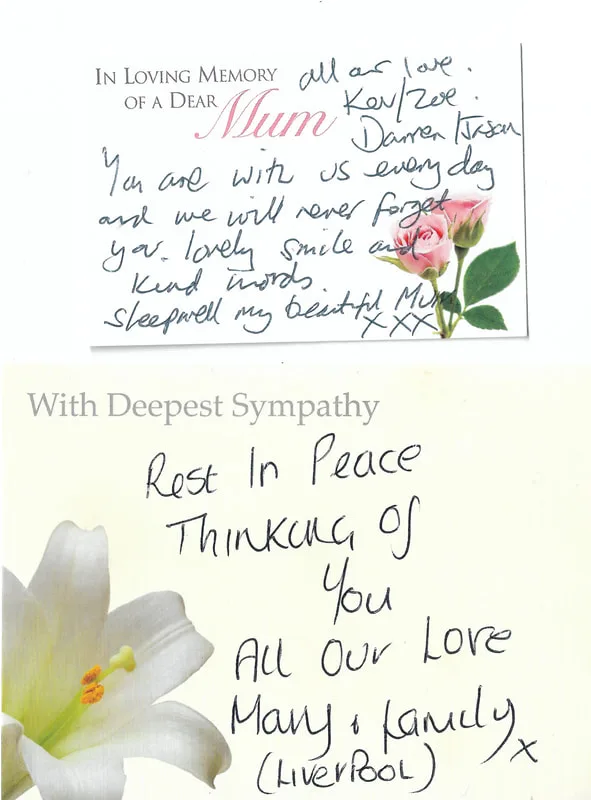 IN LOVING MEMORY
OF A DEAR
Mum
all our love.
Kev/Zoe.
Darren/Jason
You are with us every day
and we will never forget
your lovely smile and
kind words.
Sleepwell my beautiful Mum
XXX
With Deepest Sympathy
Rest In Peace
Thinking Of
You
All Our Love
Mary & Family x
(LIVERPOOL)